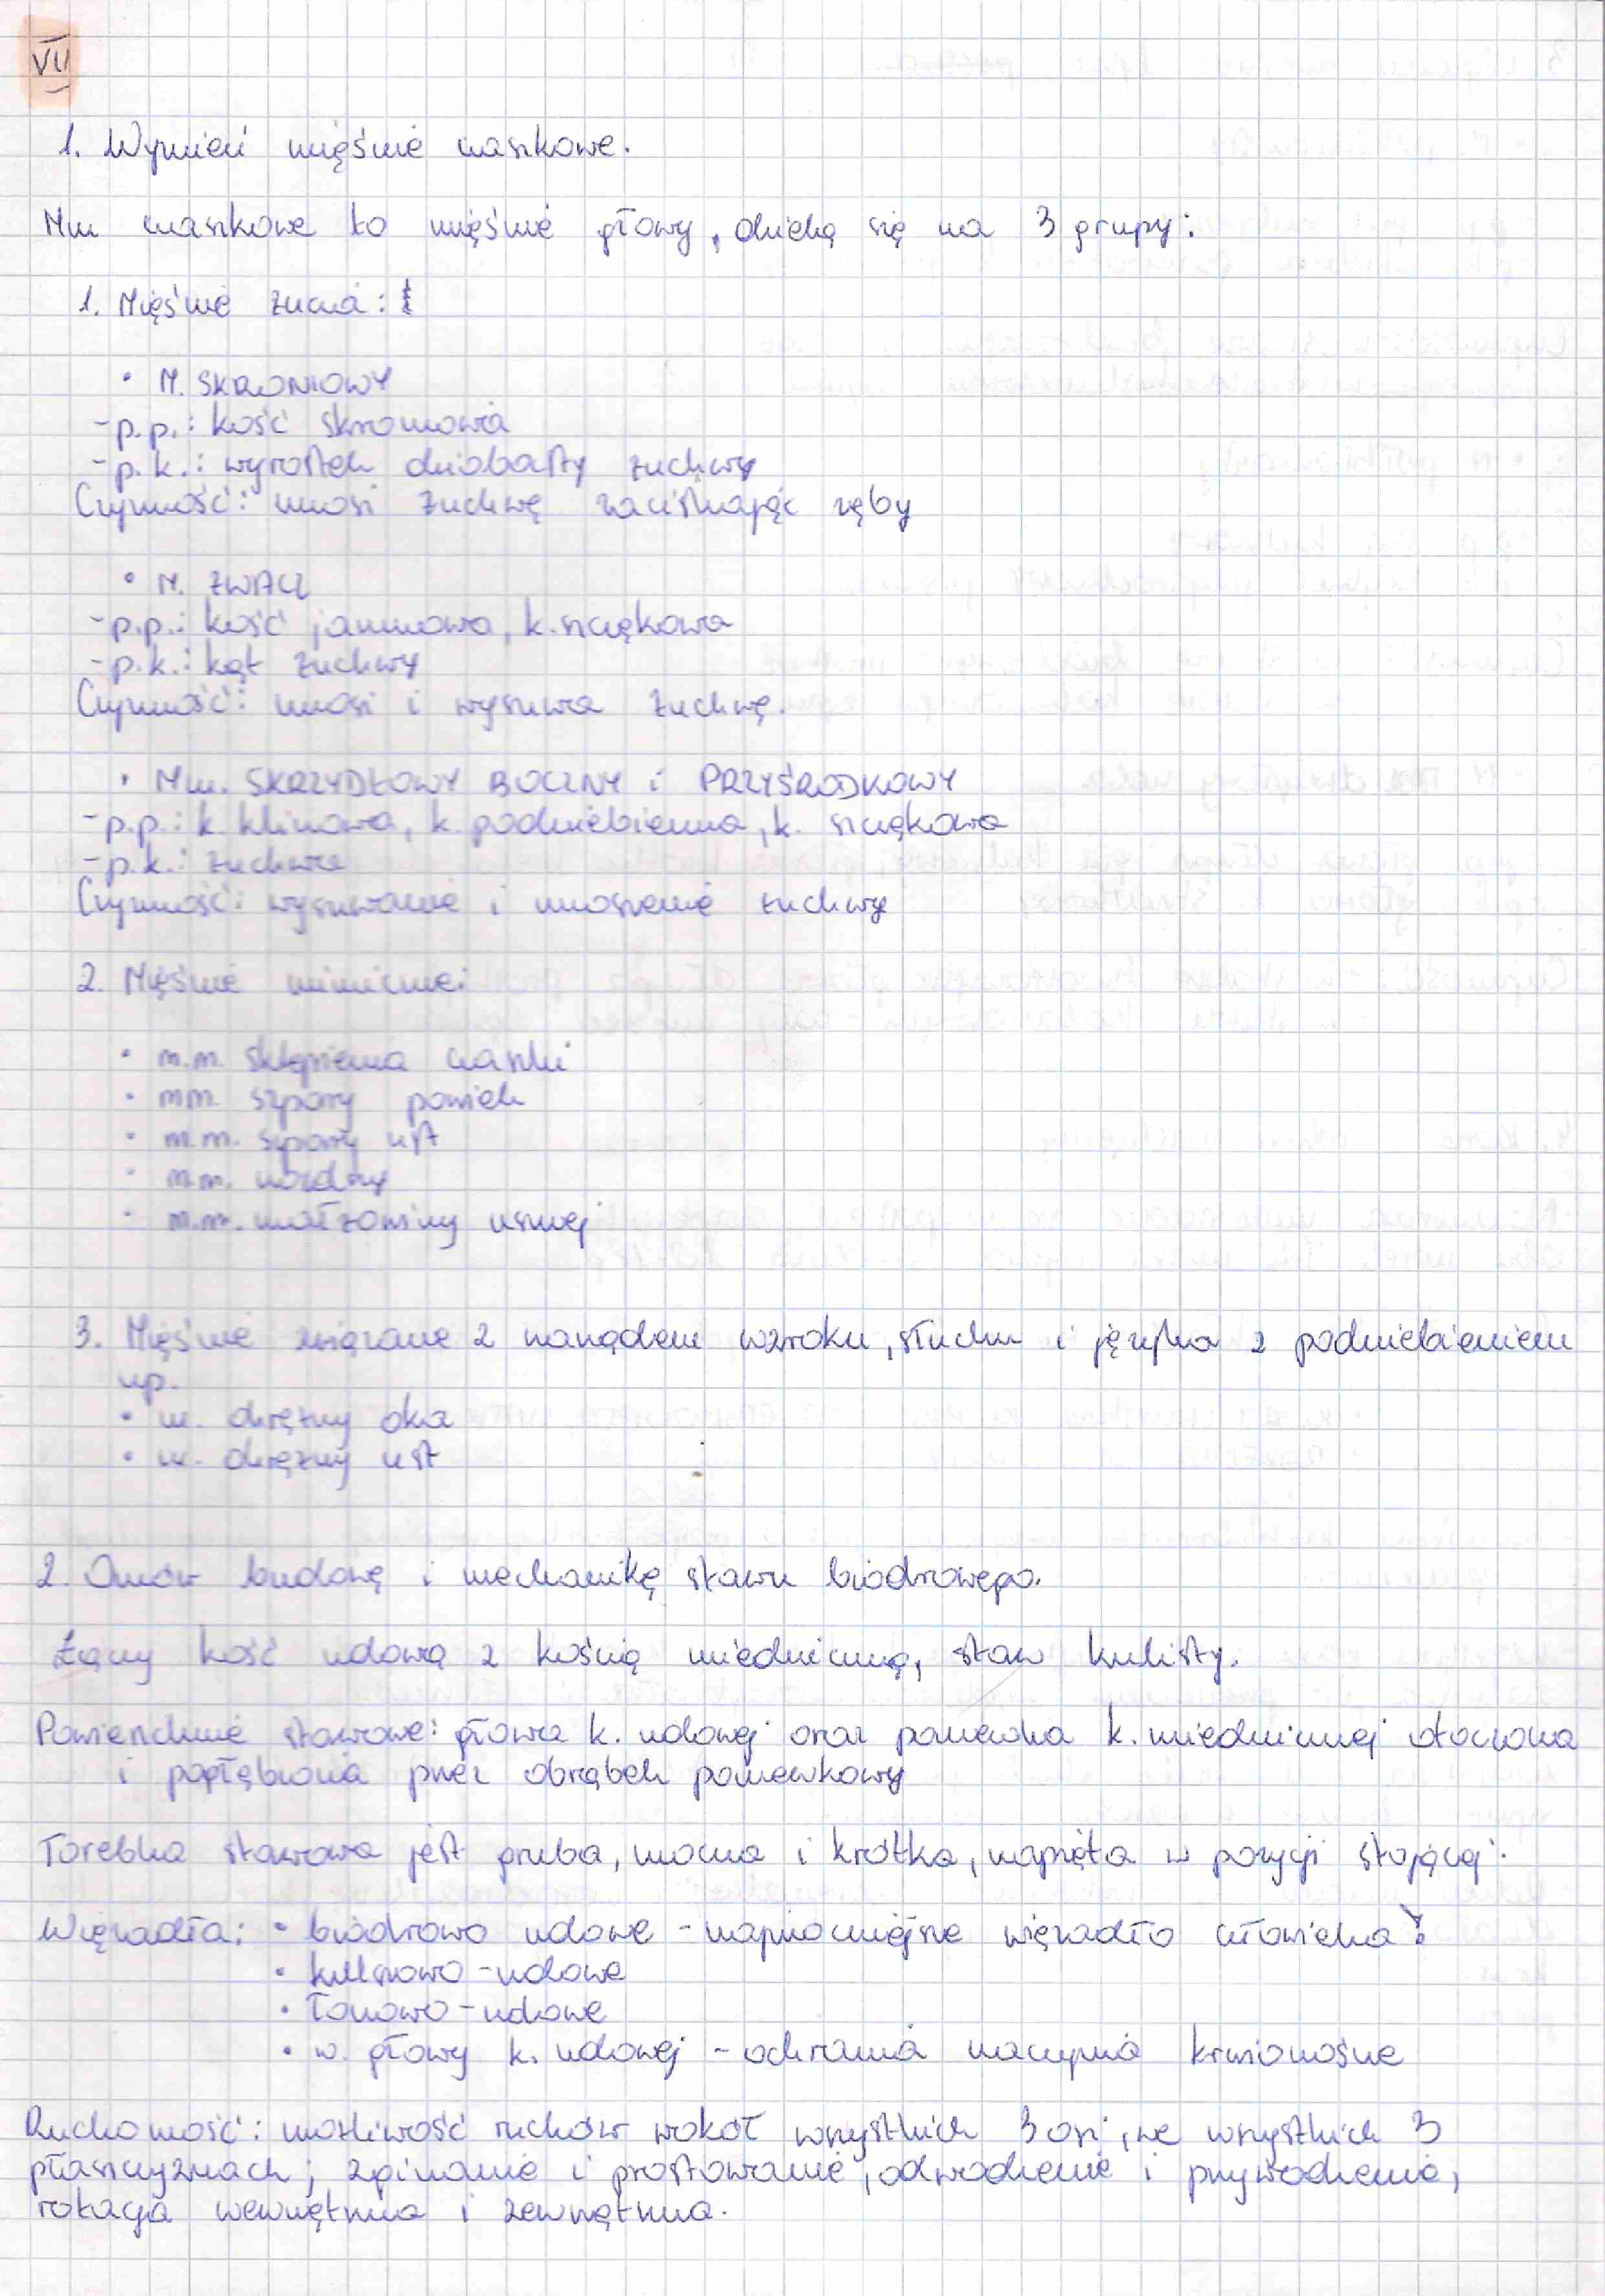 VII
1. Wymień mięśnie czaszkowe.
Mm czaszkowe to mięśnie głowy, dzielą się na 3 grupy:
1. Mięśnie żucia:
• M. SKRONIOWY
- p.p.: kość skroniowa
- p.k.: wyrostek dziobasty żuchwy
Czynność: unosi żuchwę zaciskając zęby
• M. ŻWACZ
- p.p.: kość jarzmowa, k. szczękowa
- p.k.: kąt żuchwy
Czynność: unosi i wysuwa żuchwę.
• Mm. SKRZYDŁOWY BOCZNY i PRZYŚRODKOWY
- p.p.: k. klinowa, k. podniebienna, k. szczękowa
- p.k.: żuchwa
Czynność: wysuwanie i unoszenie żuchwy
2. Mięśnie mimiczne:
• m.m. sklepienia czaszki
• mm. szpary powiek
• m.m. szpary ust
• m.m. nozdrzy
• m.m. małżowiny usznej
3. Mięśnie związane z narządem wzroku, słuchu i języka z podniebieniem
np.
• m. okrężny oka
• m. okrężny ust
2. Omów budowę i mechanikę stawu biodrowego.
Łączy kość udową z kością miedniczną, staw kulisty.
Powierzchnie stawowe: głowa k. udowej oraz panewka k. miednicznej otoczona
i pogłębiona przez obrąbek panewkowy
Torebka stawowa jest gruba, mocna i krótka, napięta w pozycji stojącej.
Więzadła: • biodrowo udowe - najmocniejsze więzadło człowieka!
• kulszowo - udowe
• łonowo - udowe
• w. głowy k. udowej - ochrania naczynia krwionośne
Ruchomość: możliwość ruchów wokół wszystkich 3 osi, we wszystkich 3
płaszczyznach; zginanie i prostowanie, odwodzenie i przywodzenie,
rotacja wewnętrzna i zewnętrzna.